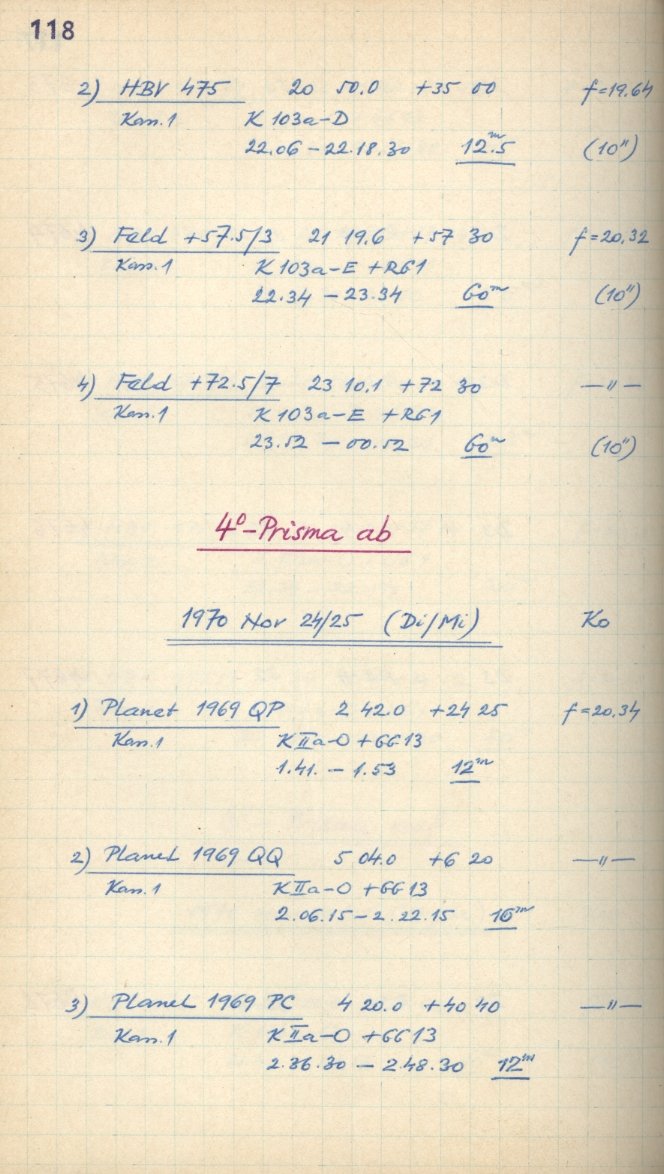 118
2) HBV 475 20 50.0 +35 00 f=19.64
Kass.1 K 103a-D
22.06 – 22.18.30 12.5ᵐ (10")
3) Feld +57.5/3 21 19.6 +57 30 f=20.32
Kass.1 K 103a-E +RG1
22.34 – 23.34 60ᵐ (10")
4) Feld +72.5/7 23 10.1 +72 30 —"—
Kass.1 K 103a-E +RG1
23.52 – 00.52 60ᵐ (10")
4⁰-Prisma ab
1970 Nov 24/25 (Di/Mi) Ko
1) Planet 1969 QP 2 42.0 +24 25 f=20.34
Kass.1 K IIa-O +GG13
1.41. – 1.53 12ᵐ
2) Planet 1969 QQ 5 04.0 +6 20 —"—
Kass.1 K IIa-O +GG13
2.06.15 – 2.22.15 16ᵐ
3) Planet 1969 PC 4 20.0 +40 40 —"—
Kass.1 K IIa-O +GG13
2.36.30 – 2.48.30 12ᵐ